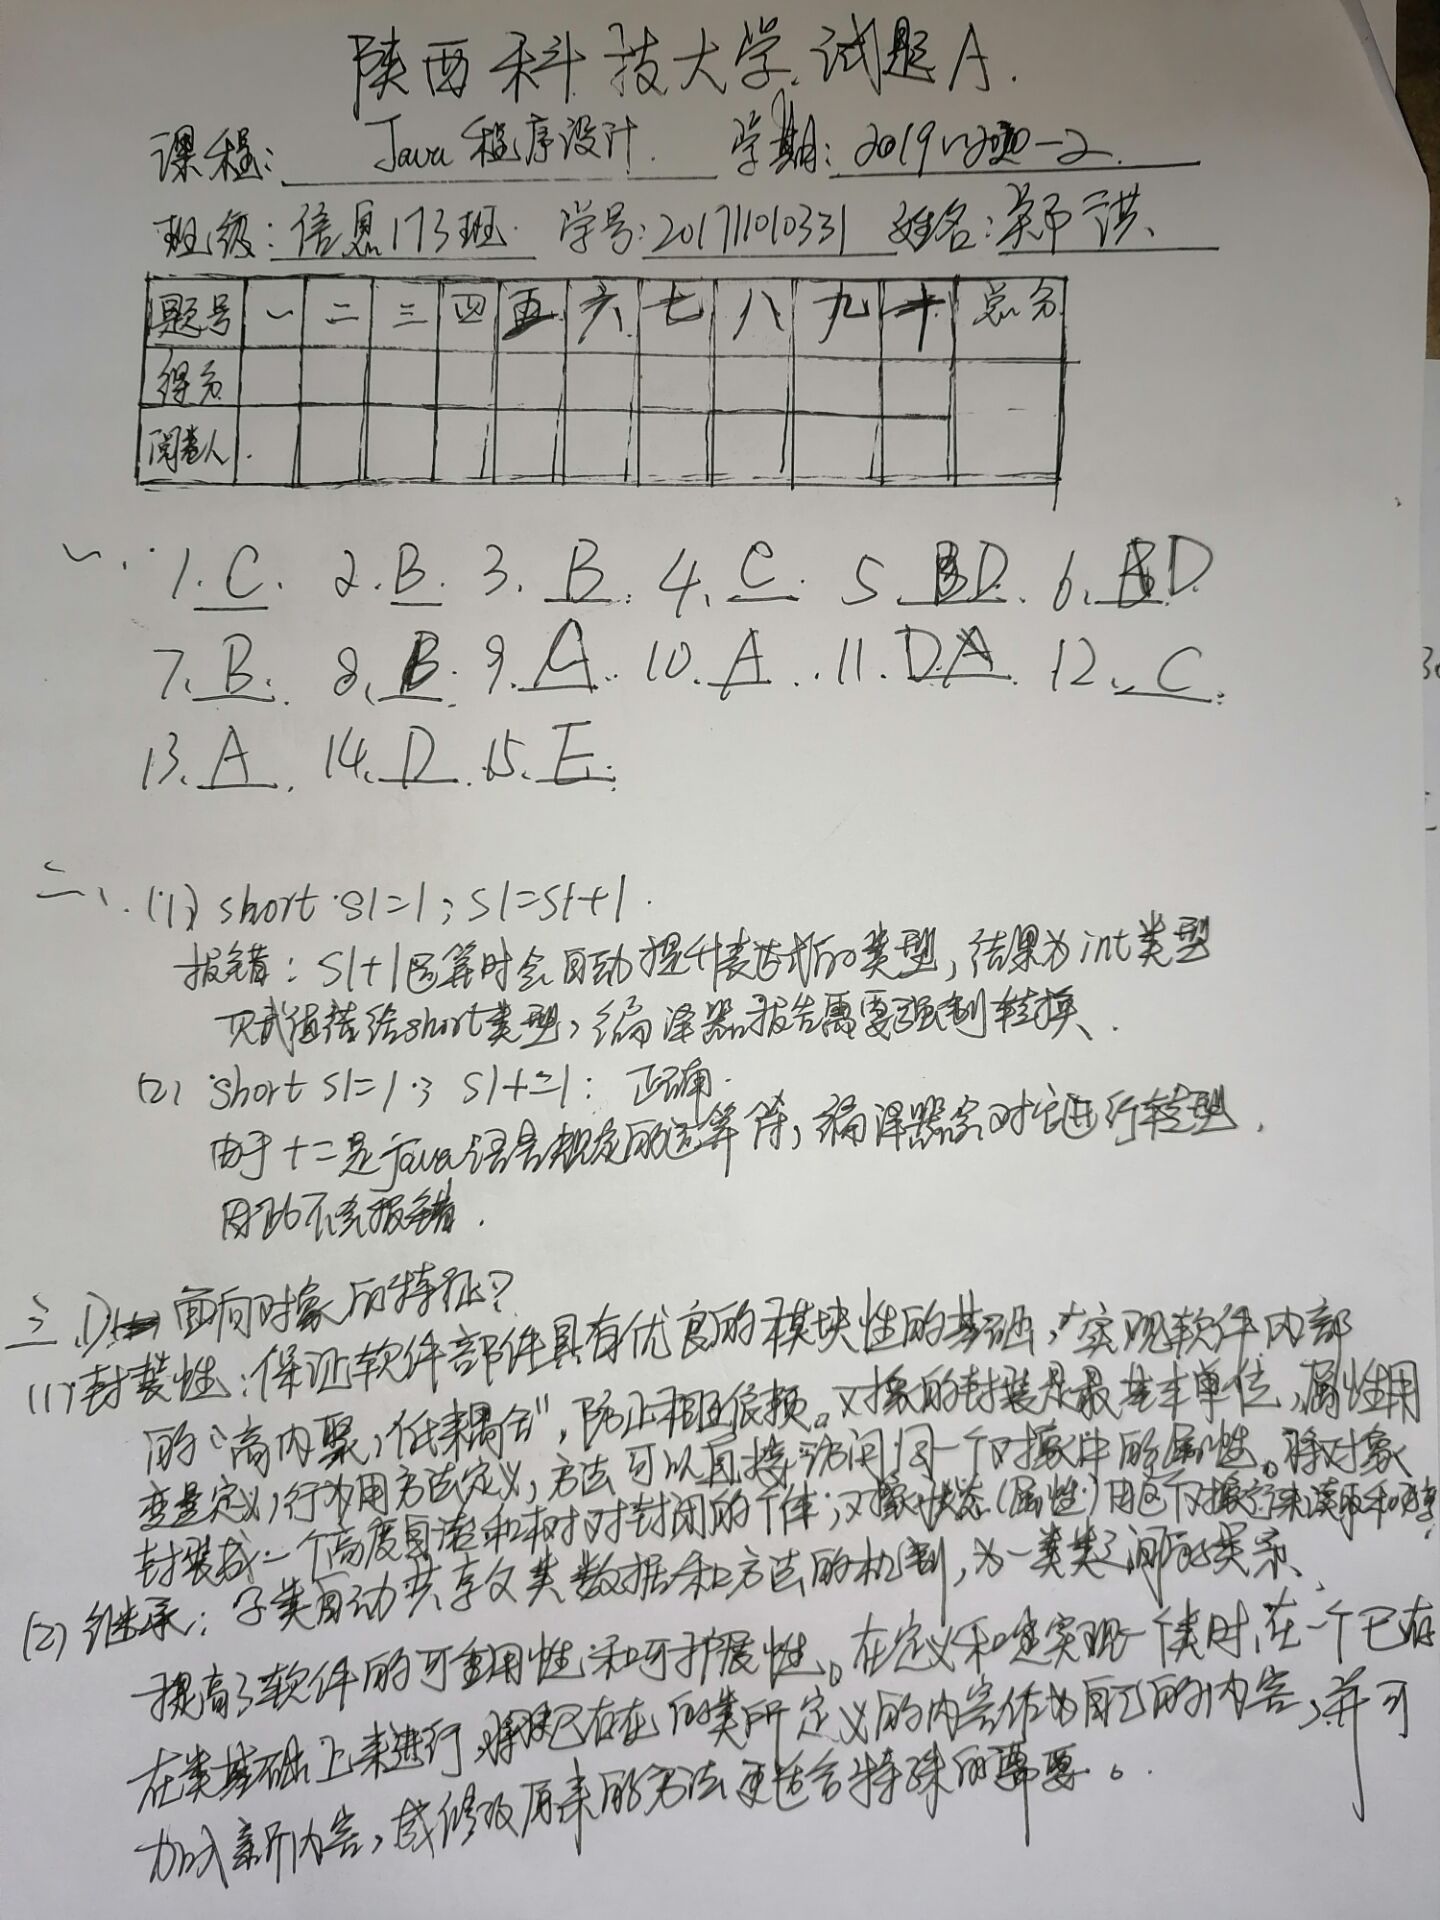 陕西科技大学试题A.
课程: Java程序设计. 学期: 2019~2020-2.
班级: 信息173班. 学号: 201711010331 姓名: 郭洪
题号 一 二 三 四 五 六 七 八 九 十 总分
得分
阅卷人
一、1. C. 2. B. 3. B. 4. C. 5. BD. 6. AD
7. B. 8. B. 9. C. 10. A. 11. DA. 12. C.
13. A. 14. D. 15. E.
二、(1) short s1=1; s1=s1+1.
报错: s1+1运算时会自动提升表达式的类型, 结果为int类型
则赋值给short类型, 编译器报告需要强制转换.
(2) short s1=1; s1+=1: 正确.
由于+=是java语言规定的运算符, 编译器会对它进行转型.
因此不会报错.
三、1) 面向对象的特征?
(1) 封装性: 保证软件部件具有优良的模块性的基础, 实现软件内部
的"高内聚, 低耦合", 防止相互依赖。对象的封装是最基本单位, 属性用
变量定义, 行为用方法定义, 方法可以直接访问同一个对象中的属性。将对象
封装成一个高度自治和相对封闭的个体; 对象状态(属性)由这个对象来读取和
(2) 继承: 子类自动共享父类数据和方法的机制, 为一类类之间的关系、
提高了软件的可重用性和可扩展性。在定义和实现一个类时, 在一个已存
在类基础上来进行, 将已存在的类所定义的内容作为自己的内容, 并可
加入新内容, 或修改原来的方法更适合特殊的需要。